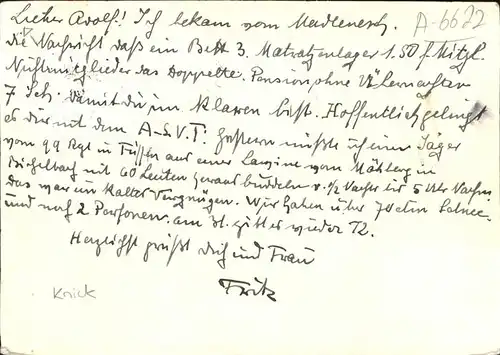 Lieber Adolf! Ich bekam vom Madlenesch. A-6622
die Nachricht daß ein Bett 3. Matratzenlager 1.50 f. Mitgl.
Nichtmitglieder das Doppelte. Pension ohne Übernachten
7 Sch. damit du im klaren bist. Hoffentlich gelingt
es dir mit dem A-S.V.T. gestern mußte ich einen Jäger
vom 99 Rgt in Füssen aus einer Lawine vom
mit 60 Leuten herausbuddeln v. 1/2 Nachts bis 5 Uhr Nachm.
das war ein kaltes Vergnügen. Wir haben über 70 ctm Schnee
und noch 2 Personen. am 31. wieder 12.
Herzlichst grüßt Dich und Frau
Fritz
Knick